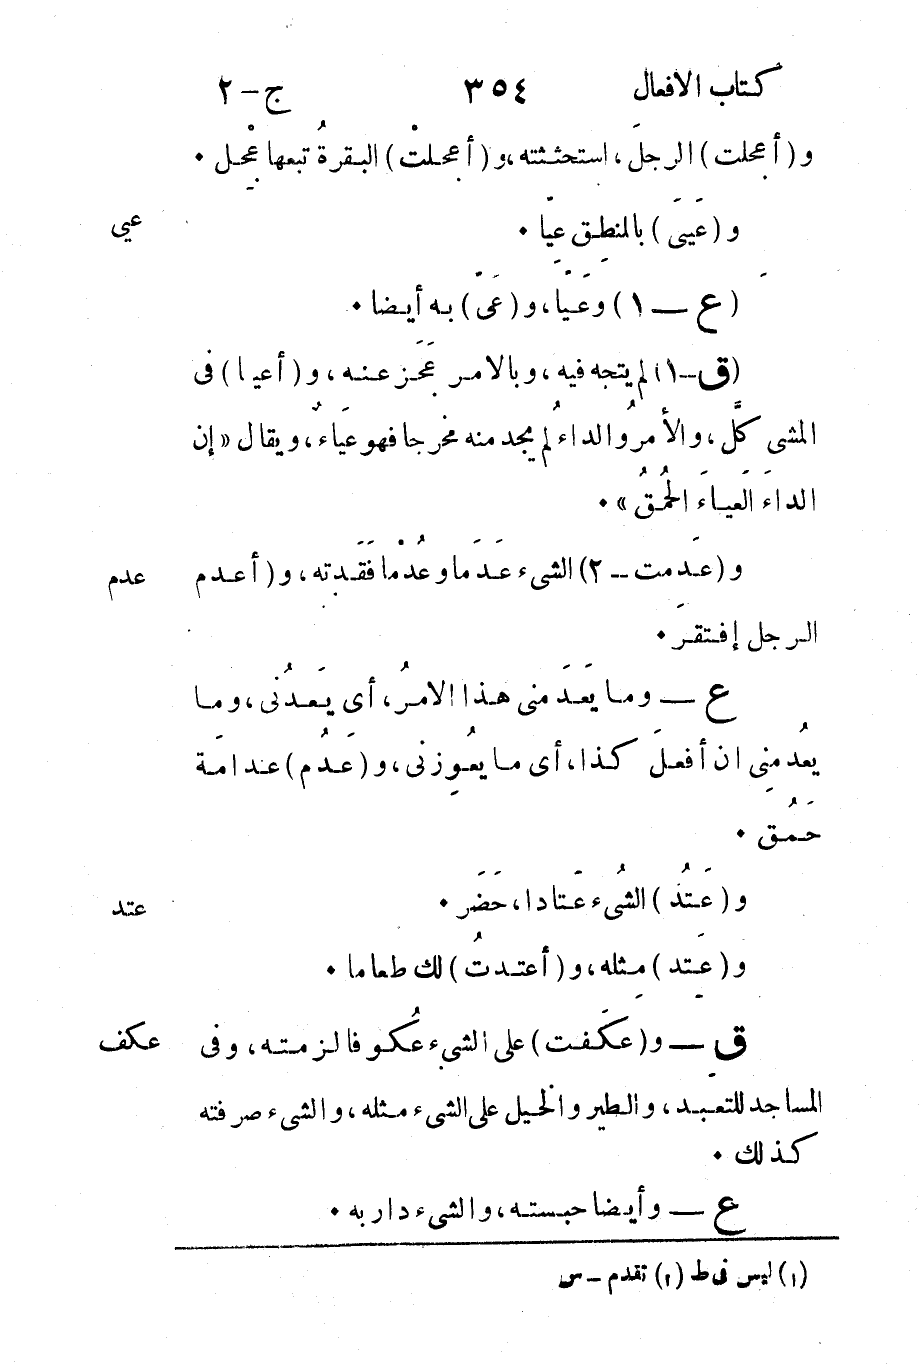 كتاب الافعال ٣٥٤ ج-٢
و (أعجلت) الرجلَ، استحثثته، و (أعجلتْ) البقرةُ تبعها عِجْل •
و (عَيِىَ) بالمنطِق عِيّا • عيى
(ع — ١) وعَيّا، و (عَىّ) به أيضا •
(ق-١) لم يتجه فيه، وبالامر عَجَز عنه، و (أعيا) فى
المشى كلَّ، والأمرُ والداءُ لم يجد منه مخرجا فهو عَياءٌ، ويقال «إن
الداءَ العَياءَ الحُمقُ» •
و (عَدِمت – ٢) الشىء عَدَما وعُدْما فَقَدته، و (أعدم عدم
الرجل إفتقرَ •
ع — وما يَعدَمنى هذا الامرُ، أى يَعدُنى، وما
يعُدمنِى ان أفعلَ كذا، أى ما يعُوِزنى، و (عَدُم) عدامَة
حَمُق •
و (عَتُد) الشىُء عَتادا، حَضَر • عتد
و (عَتِد) مِثله، و (أعتدتُ) لك طعاما •
ق — و (عكَفت) على الشىِء عُكوفا لزِمته، وفى عكف
المساجد للتعبد، والطير والخيل على الشىء مثله، والشىء صرفته
كذلك •
ع — وأيضا حبسته، والشىء دار به •
(١) ليس فى ط (٢) تقدم – س